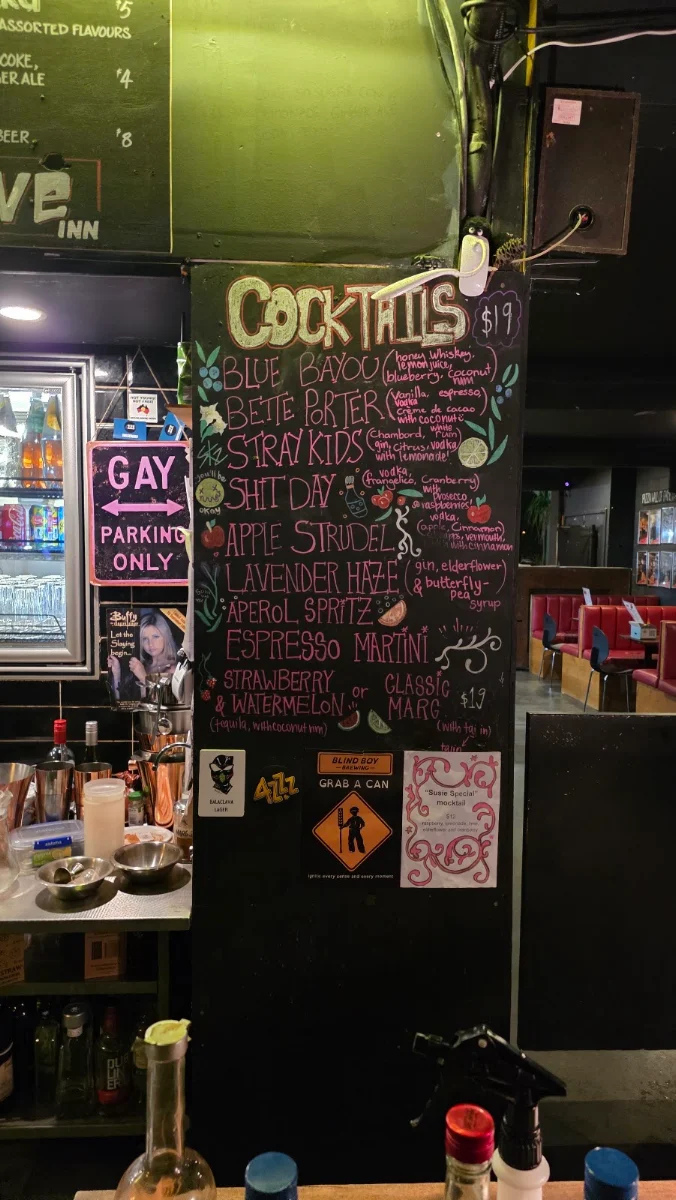 $5
ASSORTED FLAVOURS
COKE,
GER ALE $4
BEER. $8
INN
COCKTAILS $19
BLUE BAYOU (honey whiskey,
lemon juice,
blueberry, coconut
rum)
BETTE PORTER (Vanilla, espresso,
vodka
crème de cacao
with coconut)
STRAY KIDS (Chambord, white rum,
gin, citrus, vodka
with lemonade)
SKZ
you'll be
okay
SHIT DAY (vodka,
frangelico, Cranberry)
with
prosecco
& raspberries
APPLE STRUDEL (vodka,
apple, Cinnamon,
vermouth,
with cinnamon
LAVENDER HAZE (gin, elderflower
& butterfly-
pea
syrup)
APEROL SPRITZ
ESPRESSO MARTINI
STRAWBERRY
& WATERMELON or CLASSIC
MARG $19
(tequila, with coconut rim) (with tajin)
GAY
PARKING
ONLY
Buffy
Let the
Slaying
begin...
BALACLAVA
LAGER
BLIND BOY
BREWING
GRAB A CAN
Ignite every sense and every moment
"Susie Special"
mocktail
$12